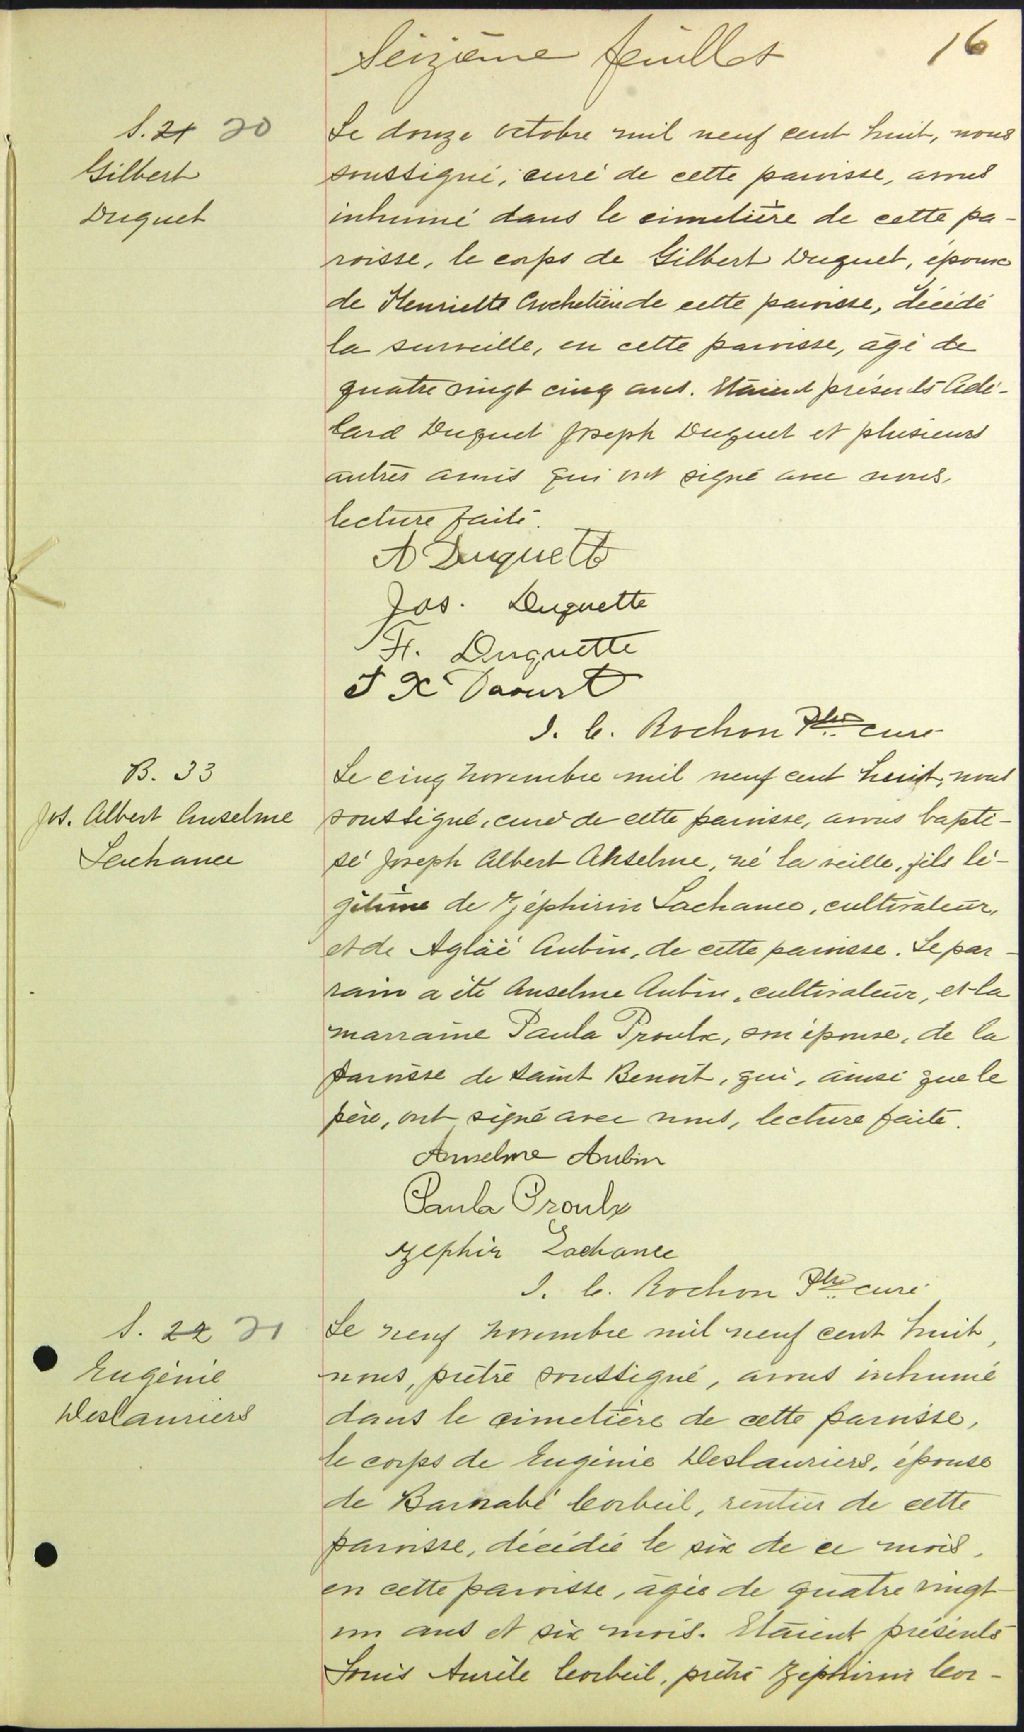 Seizième feuillet 16
S. 21 20
Gilbert
Duquet
Le douze octobre mil neuf cent huit, nous
soussigné, curé de cette paroisse, avons
inhumé dans le cimetière de cette pa-
roisse, le corps de Gilbert Duquet, époux
de Henriette Crochetière de cette paroisse, décédé
la surveille, en cette paroisse, âgé de
quatre vingt cinq ans. Etaient présents Adé-
lard Duquet Joseph Duquet et plusieurs
autres amis qui ont signé avec nous,
lecture faite.
A Duquette
Jos. Duquette
H. Duquette
F X Daoust
J. C. Rochon Ptre curé
B. 33
Jos. Albert Anselme
Lachance
Le cinq novembre mil neuf cent huit, nous
soussigné, curé de cette paroisse, avons bapti-
sé Joseph Albert Anselme, né la veille, fils lé-
gitime de Zéphirin Lachance, cultivateur,
et de Aglaë Aubin, de cette paroisse. Le par-
rain a été Anselme Aubin, cultivateur, et la
marraine Paula Proulx, son épouse, de la
paroisse de Saint Benoit, qui, ainsi que le
père, ont signé avec nous, lecture faite.
Anselme Aubin
Paula Proulx
Zephir Lachance
J. C. Rochon Ptre curé
S. 22 21
Eugénie
Deslauriers
Le neuf novembre mil neuf cent huit,
nous, prêtre soussigné, avons inhumé
dans le cimetière de cette paroisse,
le corps de Eugénie Deslauriers, épouse
de Barnabé Corbeil, rentier de cette
paroisse, décédée le six de ce mois,
en cette paroisse, âgée de quatre vingt-
un ans et six mois. Etaient présents
Louis Aurèle Corbeil, prêtre Zéphirin Cor-